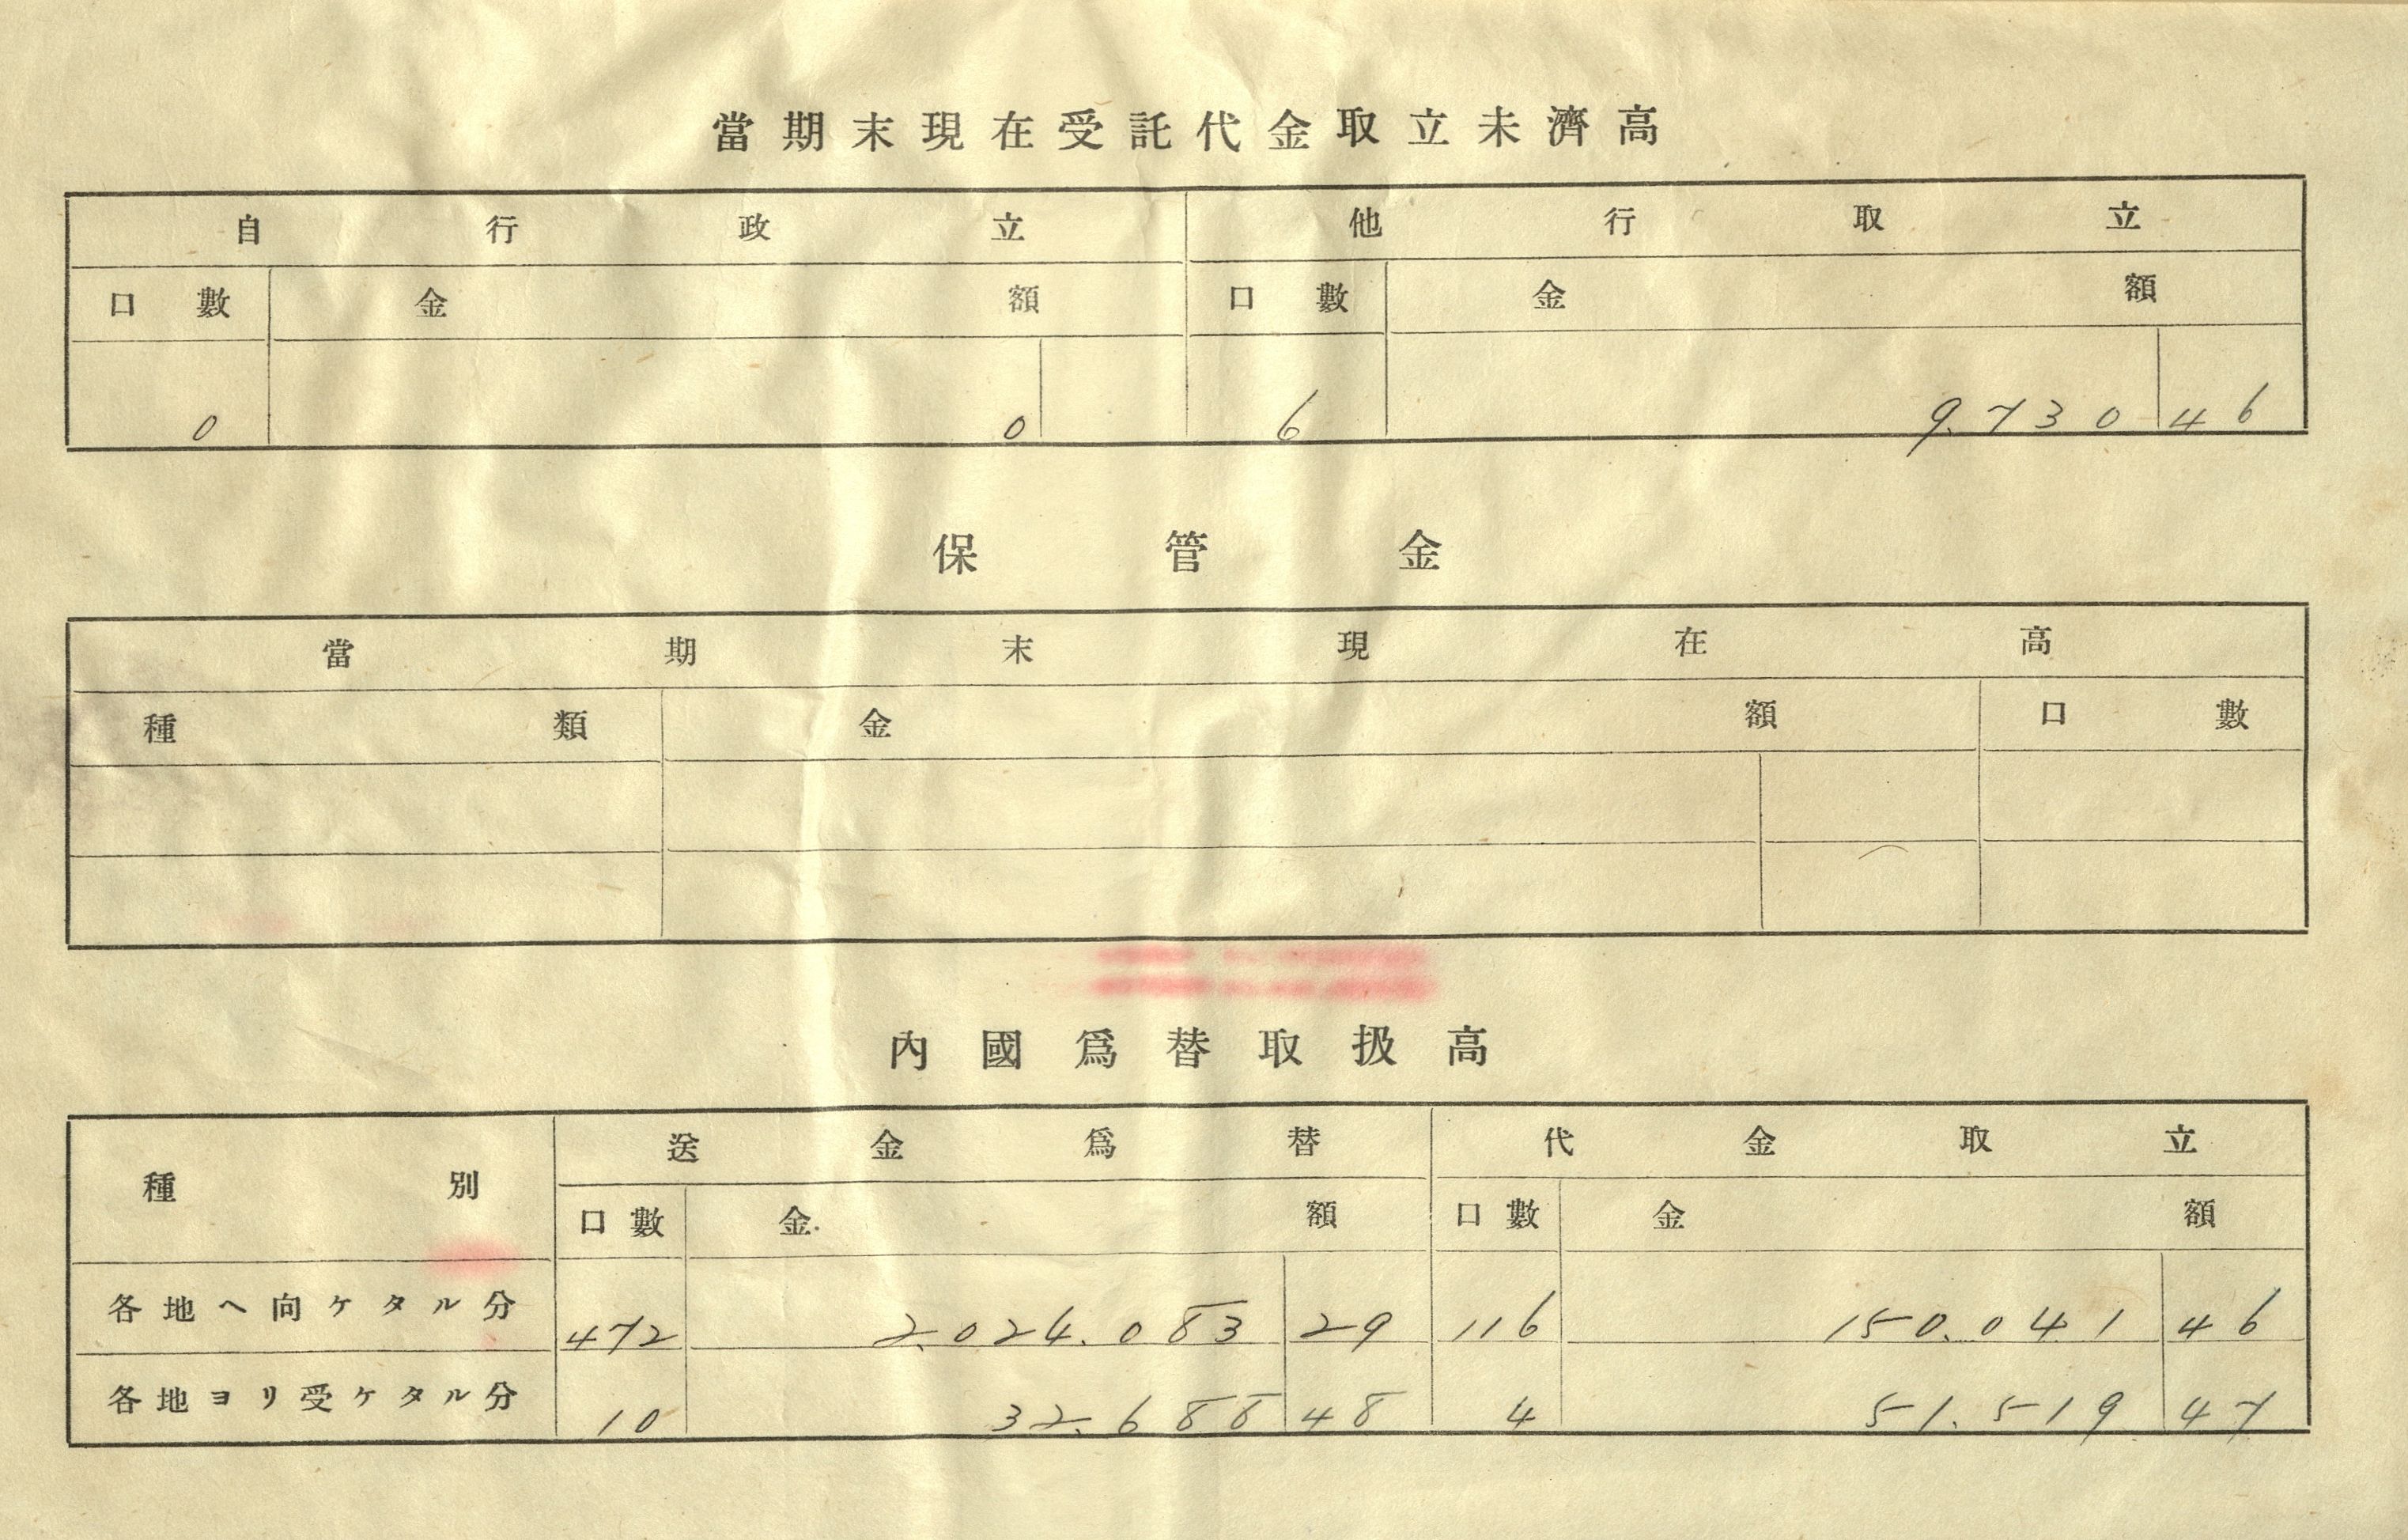 當期末現在受託代金取立未濟高
自行政立 他行取立
口數 金額 口數 金額
0 0 6 9.730 46
保管金
當期末現在高
種類 金額 口數
內國爲替取扱高
種別 送金爲替 代金取立
口數 金額 口數 金額
各地へ向ケタル分 472 2.024.083 29 116 150.041 46
各地ヨリ受ケタル分 10 32.688 48 4 51.519 47